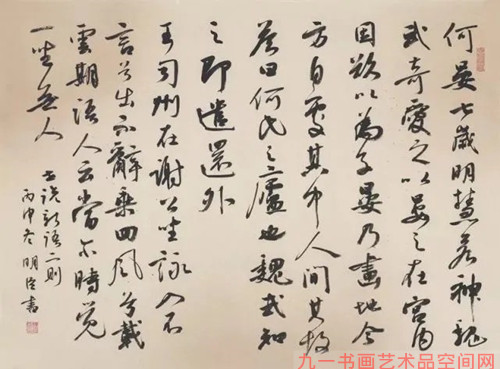 何晏七歲明慧若神魏
武奇愛之以晏之在宮內
因欲以為子晏乃畫地令
方自處其中人問其故
答曰何氏之廬也魏武知
之即遣還外
王司州在謝公坐詠入不
言兮出不辭乘回風兮載
雲旗語人云當尔時覺
一坐無人
世說新語二則
丙申冬明書
九一书画艺术品空间网